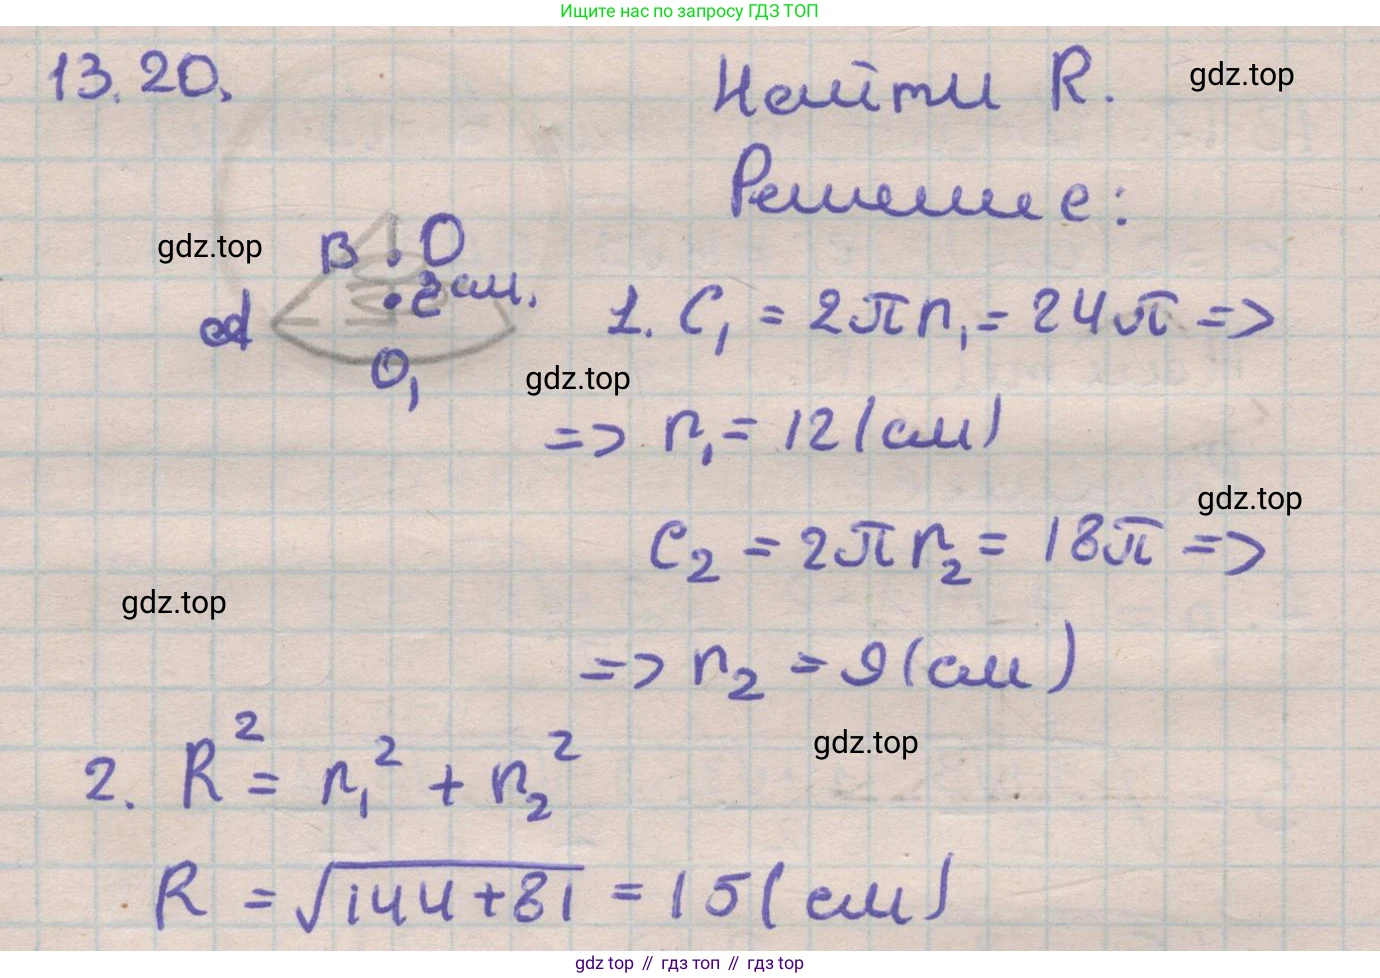 Ищите нас по запросу ГДЗ ТОП
13.20.
Найти R.
gdz.top
Решение:
gdz.top
B O
2 см.
O₁
1. C₁ = 2πr₁ = 24π =>
gdz.top
=> r₁ = 12 (см)
gdz.top
C₂ = 2πr₂ = 18π =>
gdz.top
=> r₂ = 9 (см)
gdz.top
2. R² = r₁² + r₂²
R = √144+81 = 15 (см)
gdz top // гдз топ // гдз top